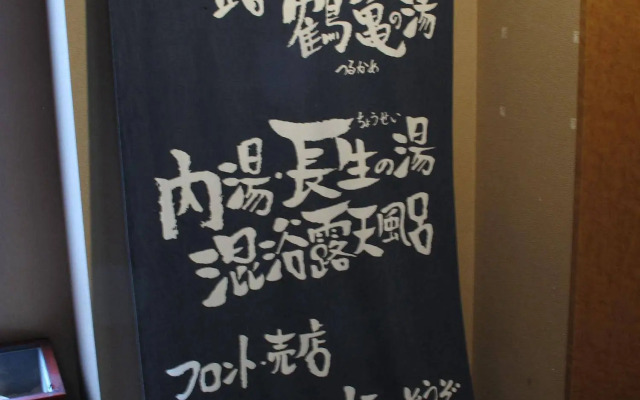 鶴亀の湯
つるかめ
ちょうせい
内湯・長生の湯
混浴露天風呂
フロント・売店
どうぞ